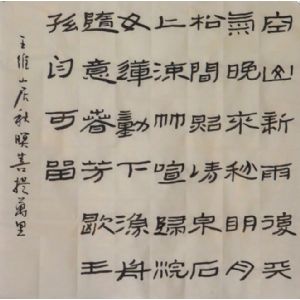 空山新雨後天
氣晚來秋明月
松間照清泉石
上流竹喧歸浣
女蓮動下漁舟
隨意春芳歇王
孫自可留
王維山居秋暝萬里